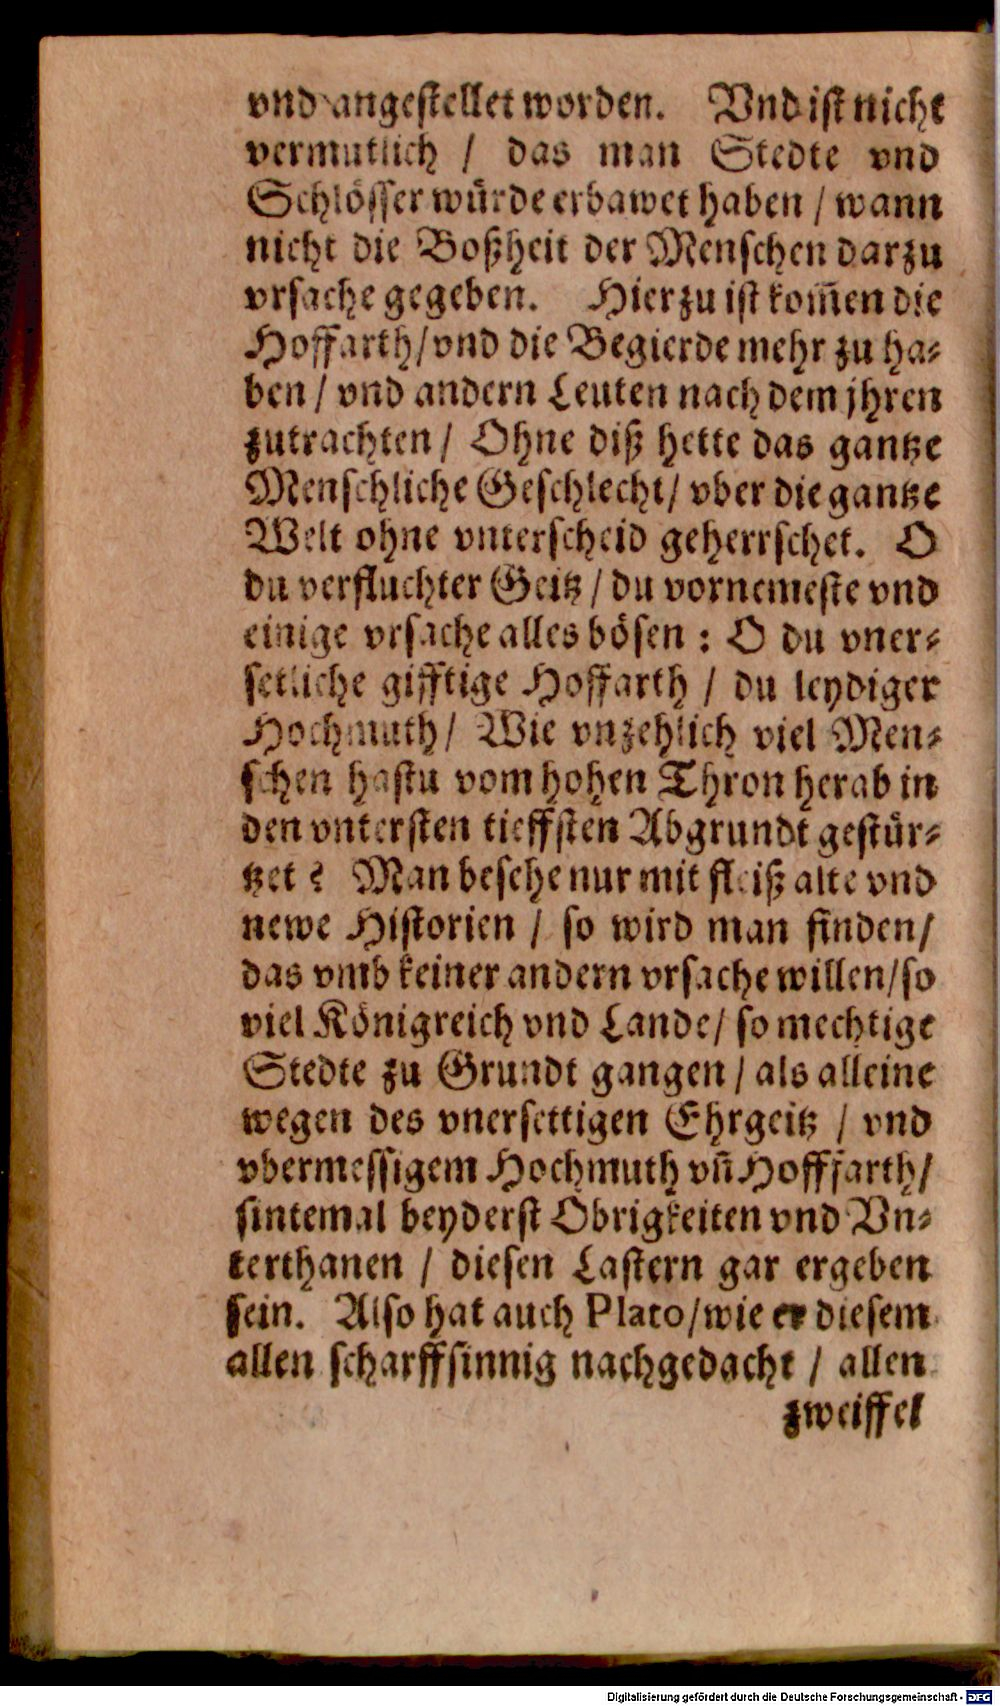 vnd angestellet worden. Vnd ist nicht
vermutlich / das man Stedte vnd
Schlösser würde erbawet haben / wann
nicht die Boßheit der Menschen darzu
vrsache gegeben. Hierzu ist kom̃en die
Hoffarth/vnd die Begierde mehr zu ha-
ben / vnd andern Leuten nach dem jhren
zutrachten / Ohne diß hette das gantze
Menschliche Geschlecht/ vber die gantze
Welt ohne vnterscheid geherrschet. O
du verfluchter Geitz / du vornemeste vnd
einige vrsache alles bösen : O du vner-
setliche gifftige Hoffarth / du leydiger
Hochmuth/ Wie vnzehlich viel Men-
schen hastu vom hohen Thron herab in
den vntersten tieffsten Abgrundt gestür-
tzet ? Man besehe nur mit fleiß alte vnd
newe Historien / so wird man finden/
das vmb keiner andern vrsache willen/so
viel Königreich vnd Lande/ so mechtige
Stedte zu Grundt gangen / als alleine
wegen des vnersettigen Ehrgeitz / vnd
vbermessigem Hochmuth vñ Hoffarth/
sintemal beyderst Obrigkeiten vnd Vn-
terthanen / diesen Lastern gar ergeben
sein. Also hat auch Plato/wie er diesem
allen scharffsinnig nachgedacht / allen
zweiffel
Digitalisierung gefördert durch die Deutsche Forschungsgemeinschaft - DFG